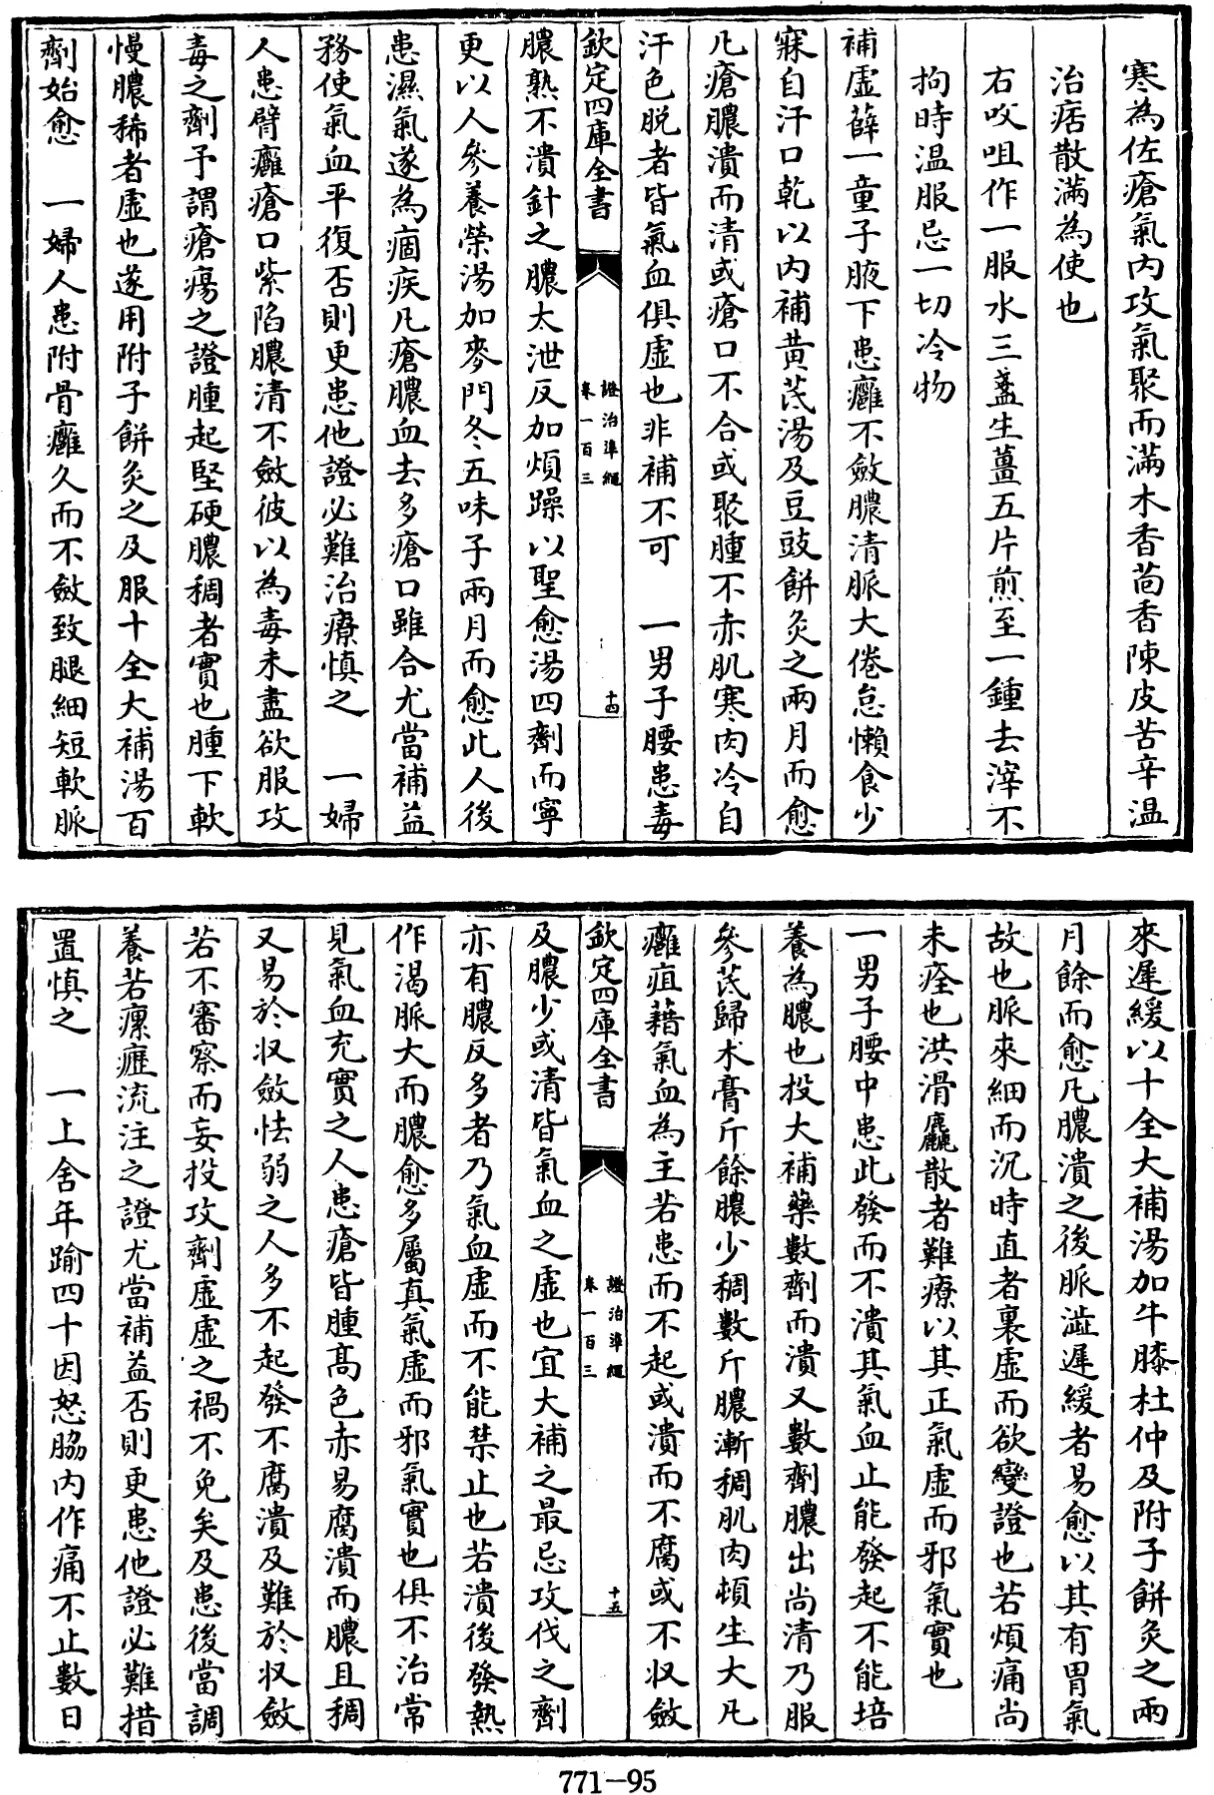 寒為佐瘡氣内攻氣聚而滿木香茴香陳皮苦辛温
治痞散滿為使也
右㕮咀作一服水三盞生薑五片煎至一鍾去滓不
拘時温服忌一切冷物
補虛薛一童子腋下患癰不斂膿清脈大倦怠懶食少
寐自汗口乾以内補黄芪湯及豆豉餅灸之兩月而愈
凡瘡膿潰而清或瘡口不合或聚腫不赤肌寒肉冷自
汗色脱者皆氣血俱虛也非補不可　一男子腰患毒
欽定四庫全書
證治準繩
卷一百三
十四
膿熟不潰針之膿大泄反加煩躁以聖愈湯四劑而寧
更以人參養榮湯加麥門冬五味子兩月而愈此人後
患濕氣遂為痼疾凡瘡膿血去多瘡口雖合尤當補益
務使氣血平復否則更患他證必難治療慎之　一婦
人患臂癰瘡口紫陷膿清不斂彼以為毒未盡欲服攻
毒之劑予謂瘡瘍之證腫起堅硬膿稠者實也腫下軟
慢膿稀者虛也遂用附子餅灸之及服十全大補湯百
劑始愈　一婦人患附骨癰久而不斂致腿細短軟脈
來遲緩以十全大補湯加牛膝杜仲及附子餅灸之兩
月餘而愈凡膿潰之後脈澁遲緩者易愈以其有胃氣
故也脈來細而沉時直者裏虛而欲變證也若煩痛尚
未痊也洪滑麤散者難療以其正氣虛而邪氣實也
一男子腰中患此發而不潰其氣血止能發起不能培
養為膿也投大補藥數劑而潰又數劑膿出尚清乃服
參芪歸术膏斤餘膿少稠數斤膿漸稠肌肉頓生大凡
癰疽藉氣血為主若患而不起或潰而不腐或不收斂
欽定四庫全書
證治準繩
卷一百三
十五
及膿少或清皆氣血之虛也宜大補之最忌攻伐之劑
亦有膿反多者乃氣血虛而不能禁止也若潰後發熱
作渴脈大而膿愈多屬真氣虛而邪氣實也俱不治常
見氣血充實之人患瘡皆腫高色赤易腐潰而膿且稠
又易於収斂怯弱之人多不起發不腐潰及難於収斂
若不審察而妄投攻劑虛虛之禍不免矣及患後當調
養若瘰癧流注之證尤當補益否則更患他證必難措
置慎之　一上舍年踰四十因怒脇内作痛不止數日
771-95